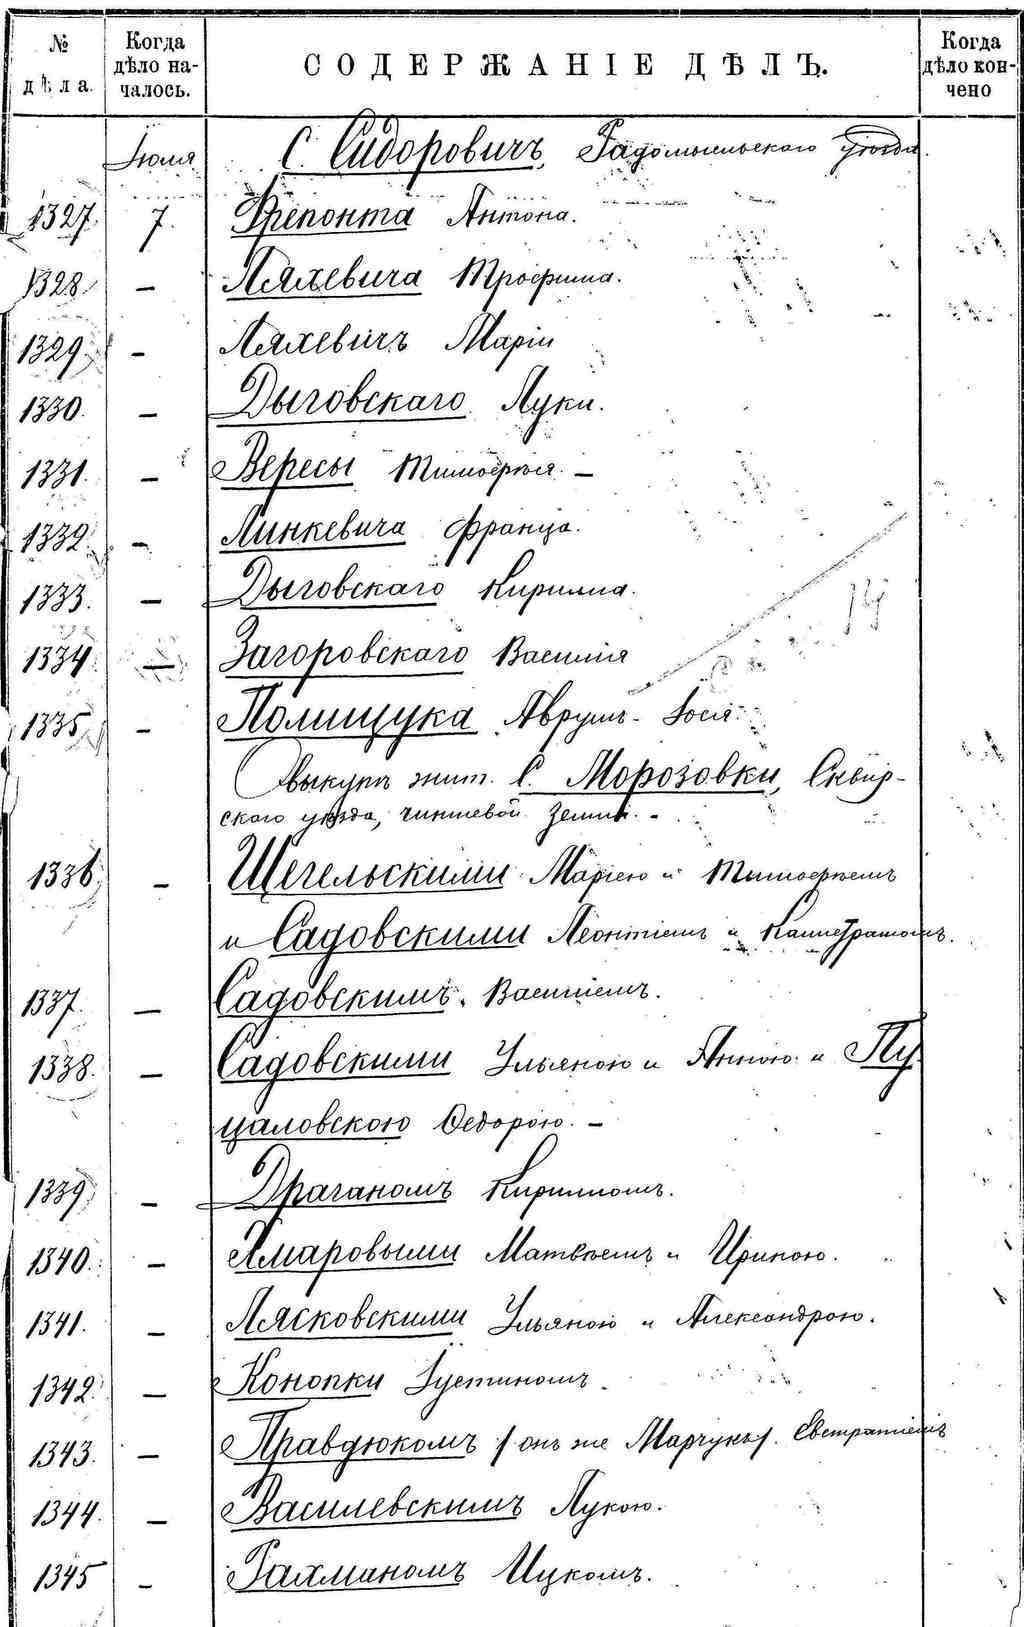 № дѣла. Когда дѣло началось. СОДЕРЖАНІЕ ДѢЛЪ. Когда дѣло кончено
Іюля С. Сидоровичъ, Радомысльскаго уѣзда.
1327. 7. Фрепонта Антона.
1328. — Ляхевича Трофима.
1329. — Ляхевичъ Маріи
1330. — Дыговскаго Луки.
1331. — Вересы Тимофея. —
1332. — Линкевича Франца.
1333. — Дыговскаго Кирилла.
1334. — Загоровскаго Василія
1335. — Полищука Аврумъ-Іося.
О выкупѣ жит. С. Морозовки, Сквир-
скаго уѣзда, чиншевой земли. -
1336. — Щегельскими Маріею и Тимофеемъ
и Садовскими Леонтіемъ и Калистратомъ.
1337. — Садовскимъ Василіемъ.
1338. — Садовскими Ульяною и Анною и Пу-
цаловскою Федорою. —
1339. — Драганомъ Кирилломъ.
1340. — Хмаровыми Матвѣемъ и Ириною.
1341. — Лясковскими Ульяною и Александрою.
1342. — Конопки Іустиномъ
1343. — Правдюкомъ /онъ же Марчукъ/. Евстратіемъ
1344. — Василевскимъ Лукою.
1345 — Рахманомъ Ицкомъ.